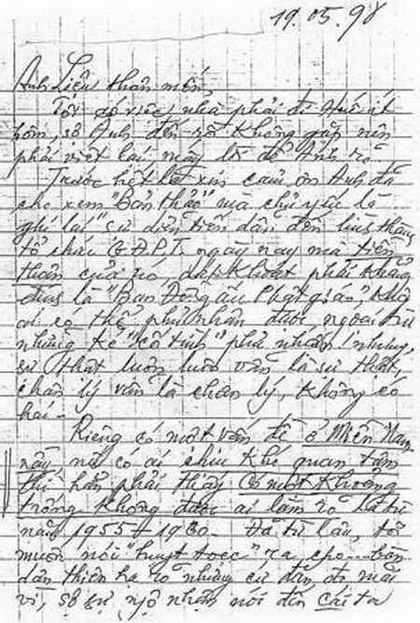 19.05.98
Anh Liên thân mến,
Tôi có việc nhà phải đi Huế ít
hôm, sợ Anh đến mà không gặp nên
phải viết lại mấy lời để Anh rõ.
Trước hết xin cảm ơn Anh đã
cho xem "Bản thảo" mà chủ yếu là
"ghi lại" sự diễn tiến dẫn đến
tổ chức G.Đ.P.T. ngày nay mà tiền
thân của nó dứt khoát phải khẳng
định là "Ban Đồng ấu Phật giáo", không
ai có thể phủ nhận được ngoại trừ
những kẻ "cố tình" phủ nhận nhưng
sự thật luôn luôn vẫn là sự thật,
chân lý vẫn là chân lý, không có
hai.-
Riêng có một vấn đề ở Miền Nam
này nếu có ai chịu khó quan tâm
thì hẳn phải thấy có một khoảng
trống không được ai làm rõ là từ
năm 1955 1960. Đã từ lâu, tôi
muốn nói "huỵt toẹc" ra cho bàn
dân thiên hạ rõ những cứ đắn đo mãi
vì sợ sự ngộ nhận nói đến cái ta